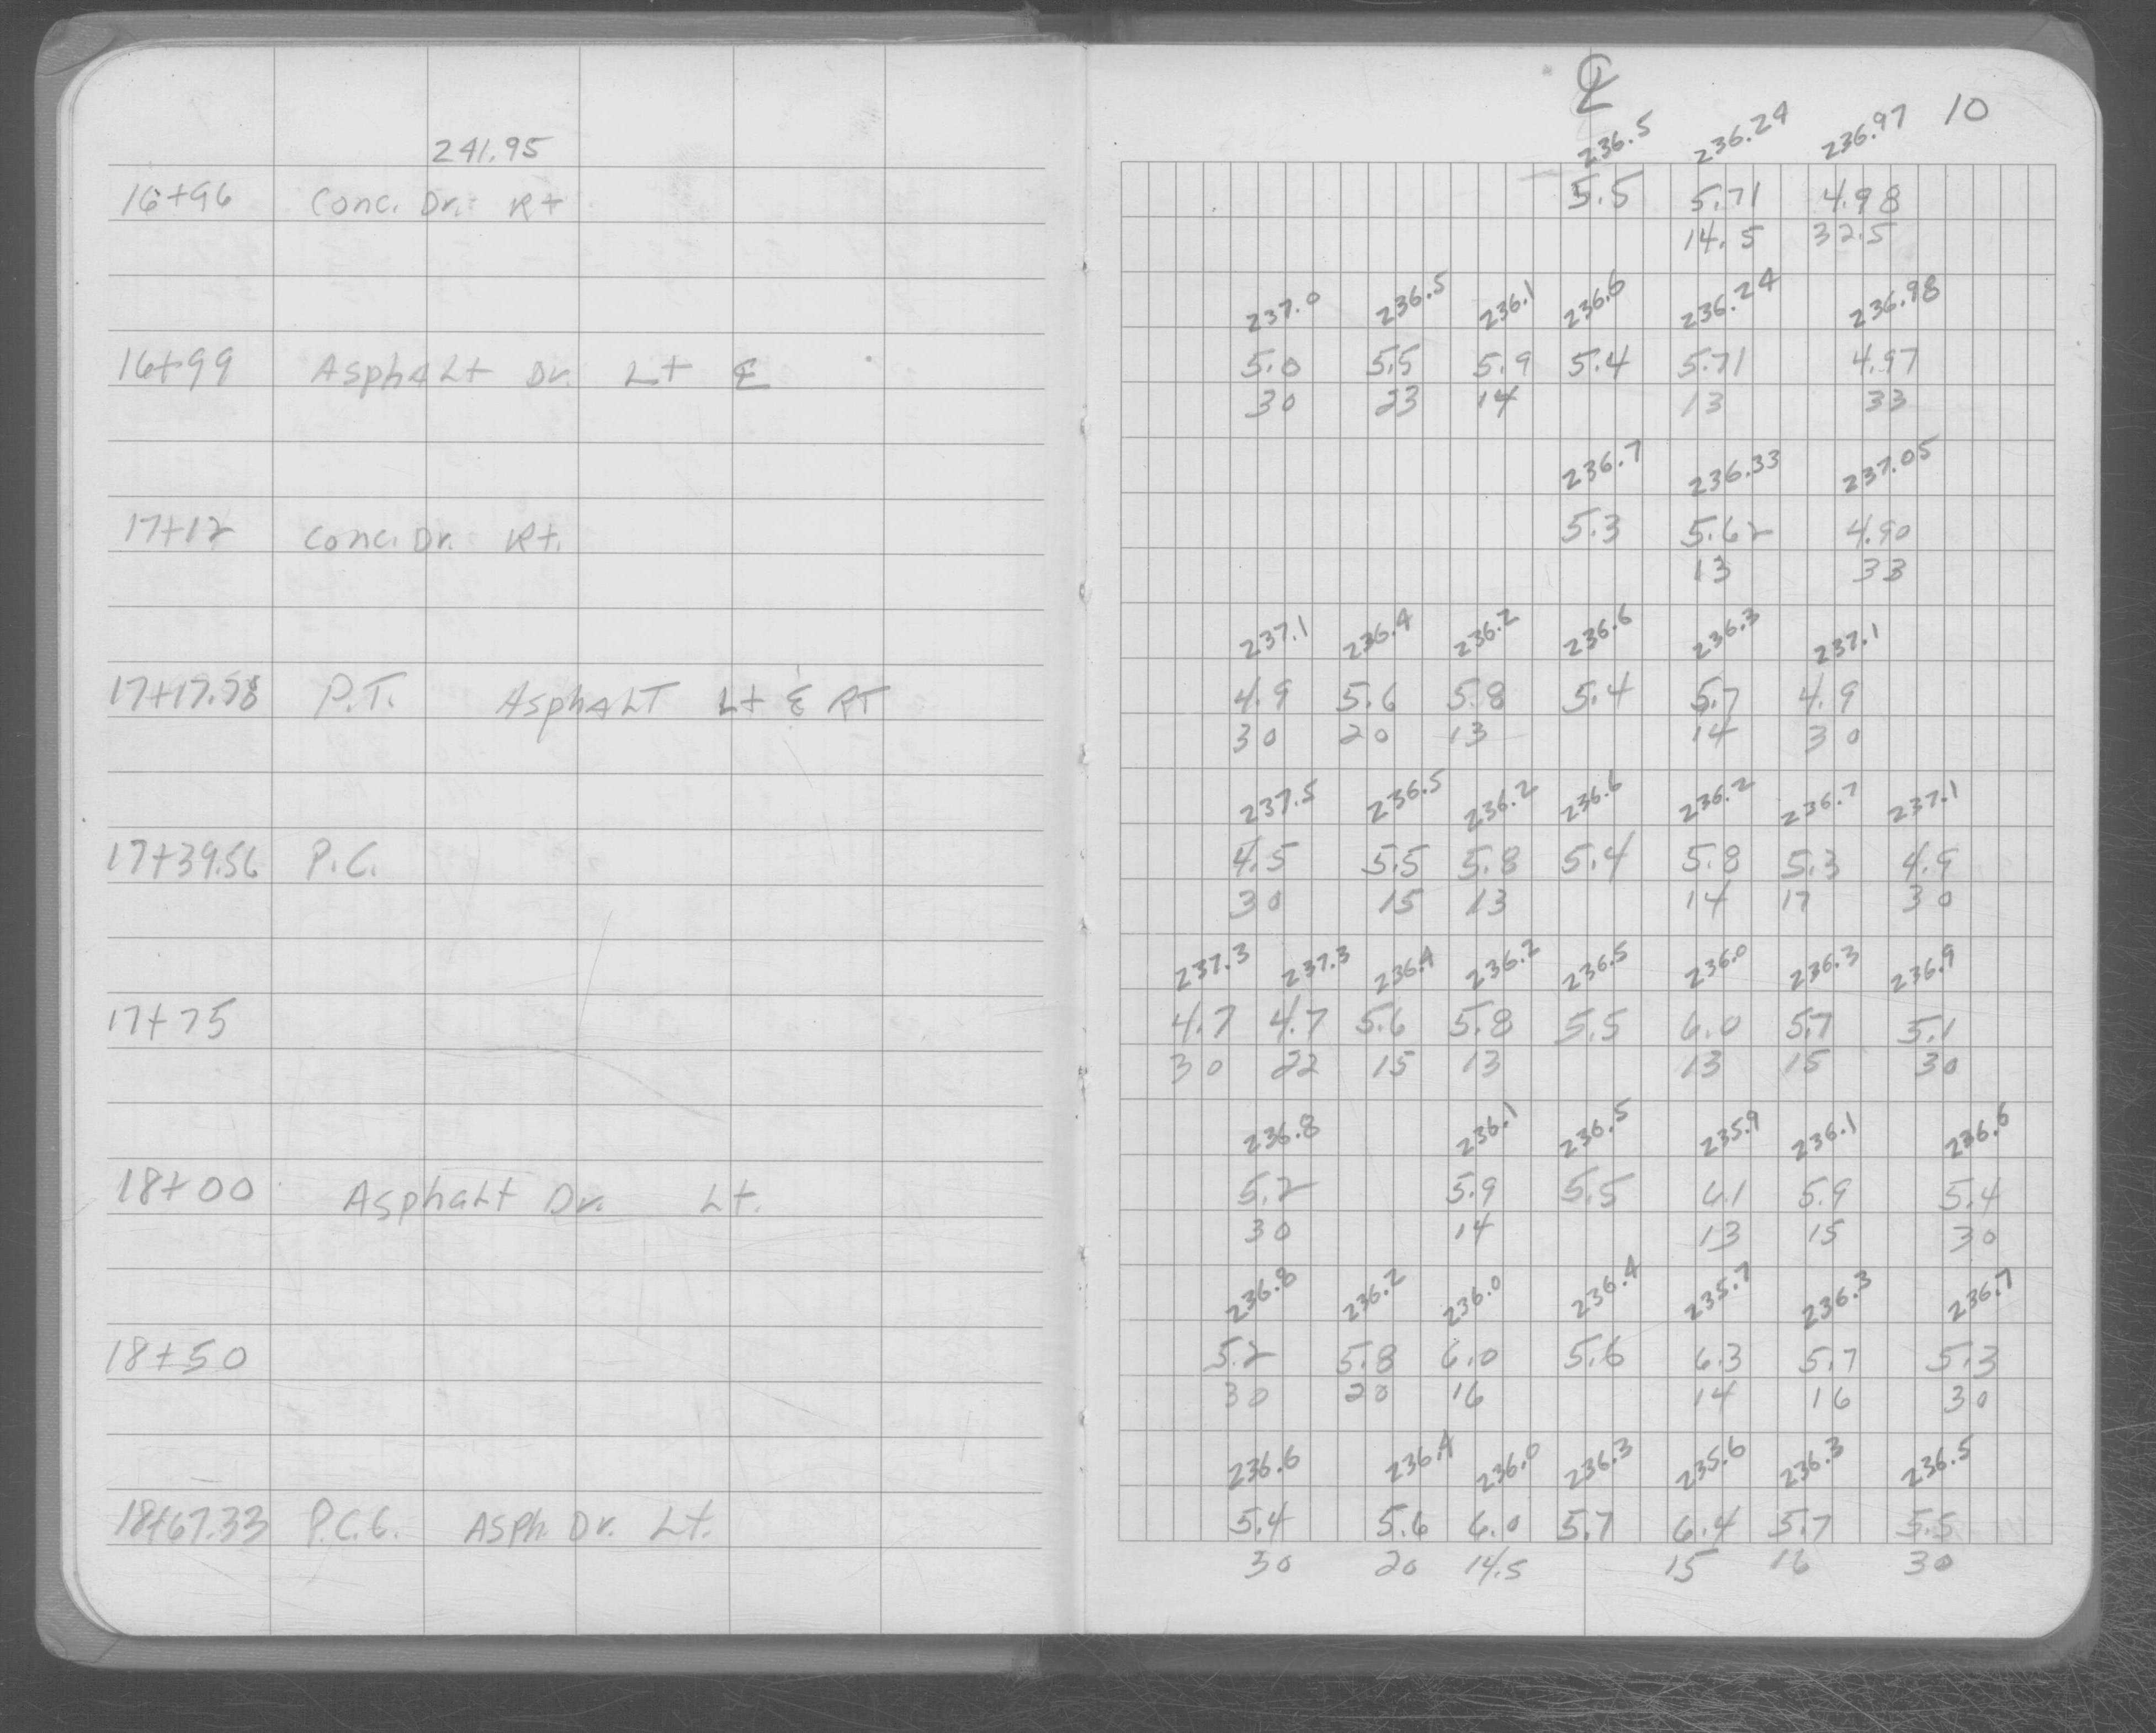 ℄ 10
241.95 236.5 236.24 236.97
16+96 Conc. Dr. Rt 5.5 5.71 4.98
14.5 32.5
237.0 236.5 236.1 236.6 236.24 236.98
16+99 Asphalt Dr. Lt ℄ 5.0 5.5 5.9 5.4 5.71 4.97
30 23 14 13 33
236.7 236.33 237.05
17+12 Conc. Dr. Rt. 5.3 5.62 4.90
13 33
237.1 236.4 236.2 236.6 236.3 237.1
17+17.78 P.T. Asphalt Lt & RT 4.9 5.6 5.8 5.4 5.7 4.9
30 20 13 14 30
237.5 236.5 236.2 236.6 236.2 236.7 237.1
17+39.56 P.C. 4.5 5.5 5.8 5.4 5.8 5.3 4.9
30 15 13 14 17 30
237.3 237.3 236.4 236.2 236.5 236.0 236.3 236.9
17+75 4.7 4.7 5.6 5.8 5.5 6.0 5.7 5.1
30 22 15 13 13 15 30
236.8 236.1 236.5 235.9 236.1 236.6
18+00 Asphalt Dr. Lt. 5.2 5.9 5.5 6.1 5.9 5.4
30 14 13 15 30
236.8 236.2 236.0 236.4 235.7 236.3 236.7
18+50 5.2 5.8 6.0 5.6 6.3 5.7 5.3
30 20 16 14 16 30
236.6 236.4 236.0 236.3 235.6 236.3 236.5
18+67.33 P.C.C. Asph. Dr. Lt. 5.4 5.6 6.0 5.7 6.4 5.7 5.5
30 20 14.5 15 16 30